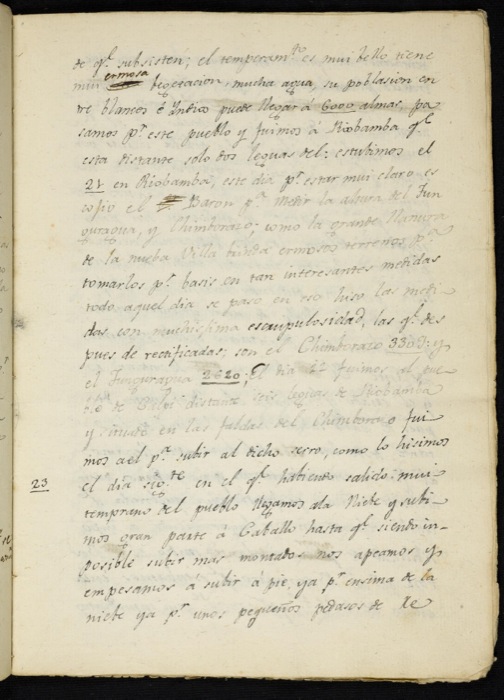 de q.^e subsisten; el temperam.^to es mui bello tiene
mui ermosa begetacion, mucha agua, su poblasion en
tre blancos é Indios puede llegar á 6000 almas, pa
samos p.^r este pueblo y fuimos á Riobamba q.^e
esta distante solo dos leguas del: estubimos el
21 en Riobamba, este dia p.^r estar mui claro es
cojio el Baron p.^a medir la altura del Tun
guragua, y Chimborazo; como la grande llanura
de la nueba Villa brinda ermosos terrenos p.^a
tomarlos p.^r basis en tan interesantes medidas
todo aquel dia se paso en eso hiso las medi
das con muchissima escrupulosidad, las q.^e des
pues de rectificadas; son el Chimborazo 3300; y
el Tunguragua 2620; El dia fuimos al pue
blo de Calpi distante seis leguas de Riobamba
y situado en las faldas del Chimborazo fui
mos a el p.^a subir al dicho serro, como lo hisimos
23 el dia sig.^te en el q.^e habiendo salido mui
temprano del pueblo llegamos ala Niebe y subi
mos gran parte á Caballo hasta q.^e siendo in-
posible subir mas montados nos apeamos y
empesamos á subir á pie, ya p.^r ensima de la
niebe ya p.^r unos pequeños pedasos de